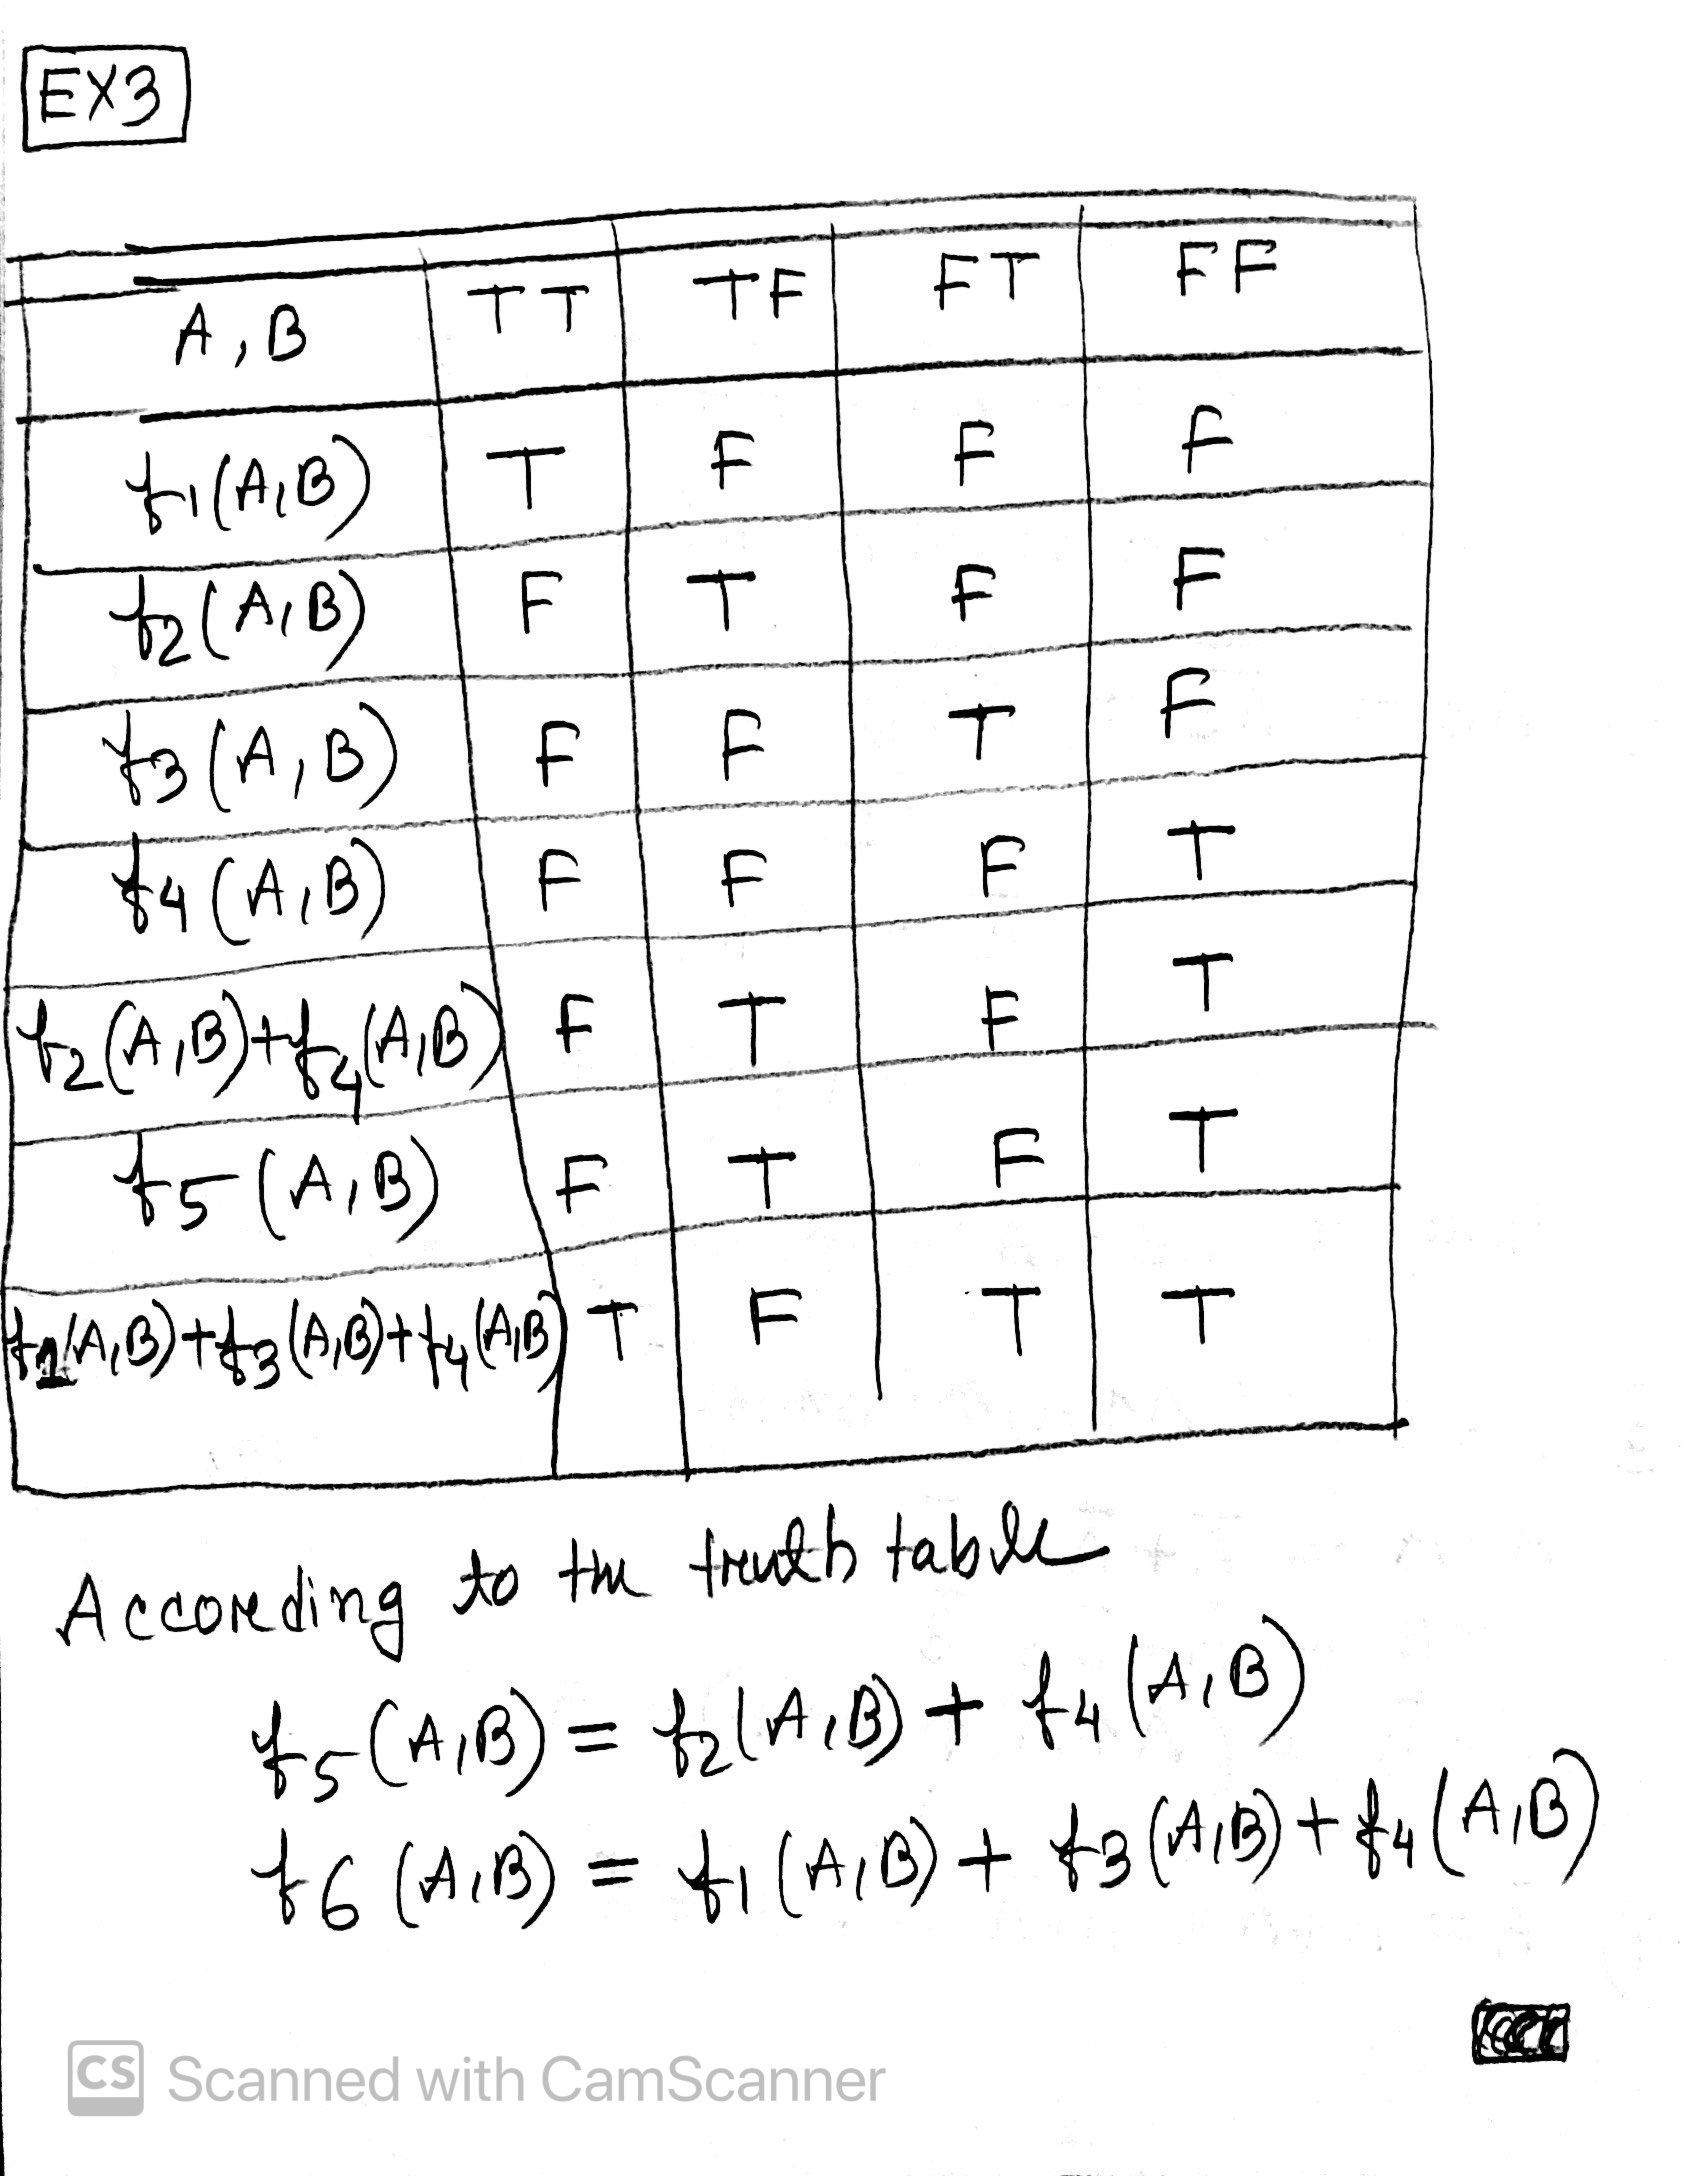 EX3
A, B TT TF FT FF
f1(A,B) T F F F
f2(A,B) F T F F
f3(A,B) F F T F
f4(A,B) F F F T
f2(A,B)+f4(A,B) F T F T
f5(A,B) F T F T
f1(A,B)+f3(A,B)+f4(A,B) T F T T
According to the truth table
f5(A,B) = f2(A,B) + f4(A,B)
f6(A,B) = f1(A,B) + f3(A,B) + f4(A,B)
CS Scanned with CamScanner